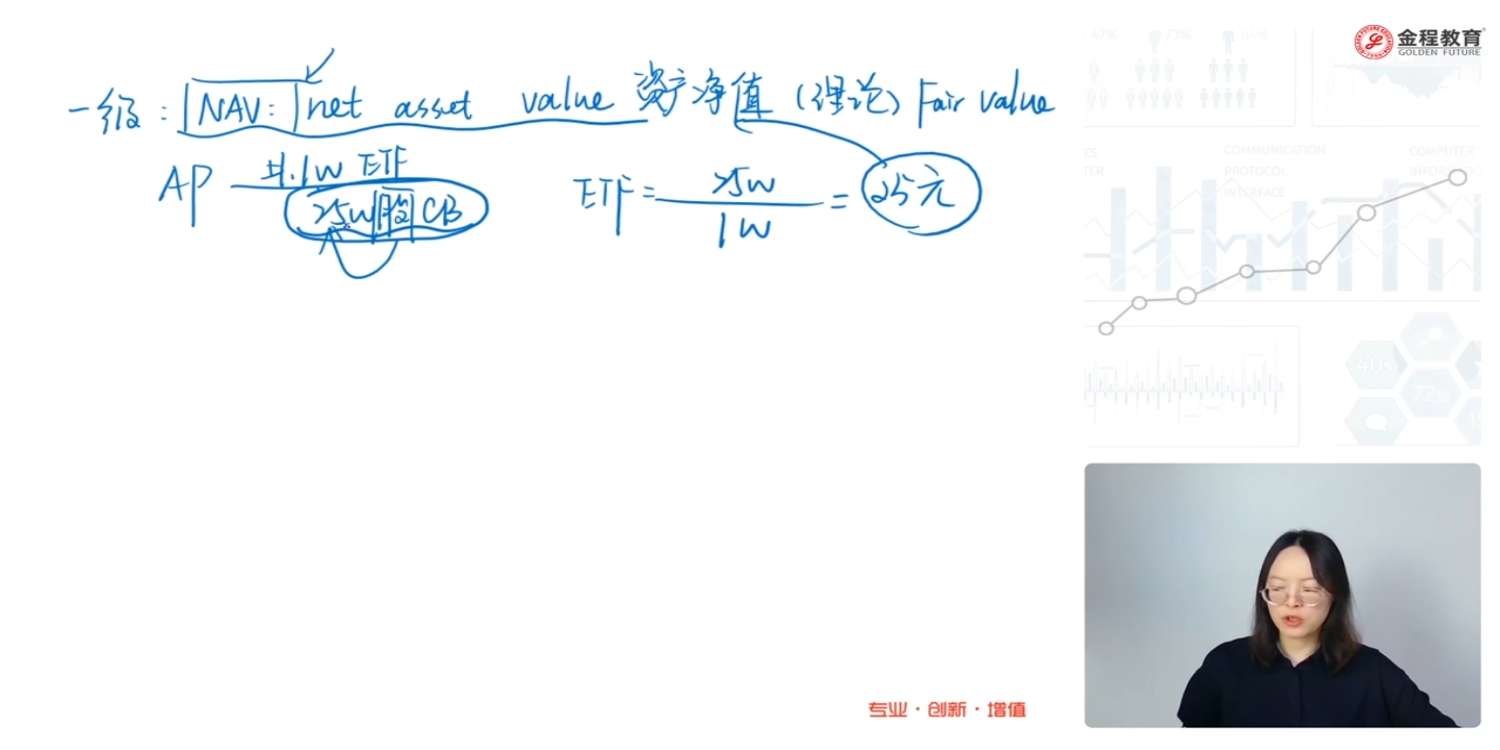 一级: NAV: net asset value 资产净值 (理论) Fair value
AP 1W ETF
25W股 CB
ETF = 25W / 1W = 25元
金程教育
GOLDEN FUTURE
47% 73%
COMMUNICATION
PROTOCOL
INTERFACE
COMPUTER
专业·创新·增值